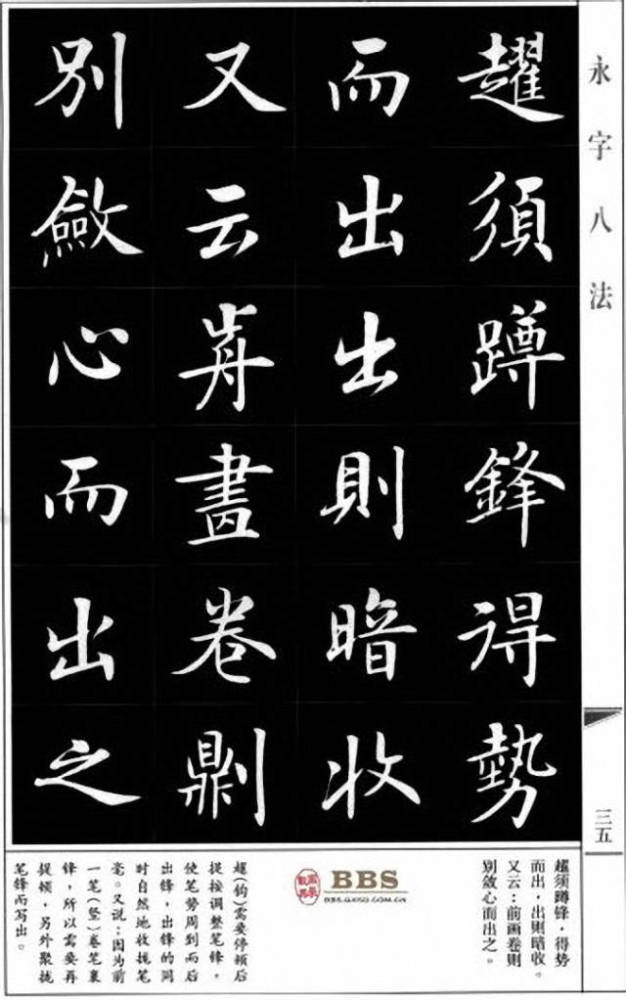 永字八法
趯須蹲鋒得勢
而出出則暗收
又云歬畫卷𠟭
別斂心而出之
三五
趯须蹲锋，得势
而出，出则暗收。
又云：前画卷则
别敛心而出之。
BBS
趯(钩)需要停顿后
提按调整笔锋，
使笔势周到而后
出锋，出锋的同
时自然地收拢笔
毫。又说：因为前
一笔(竖)卷笔裹
锋，所以需要再
提顿，另外聚拢
笔锋而写出。